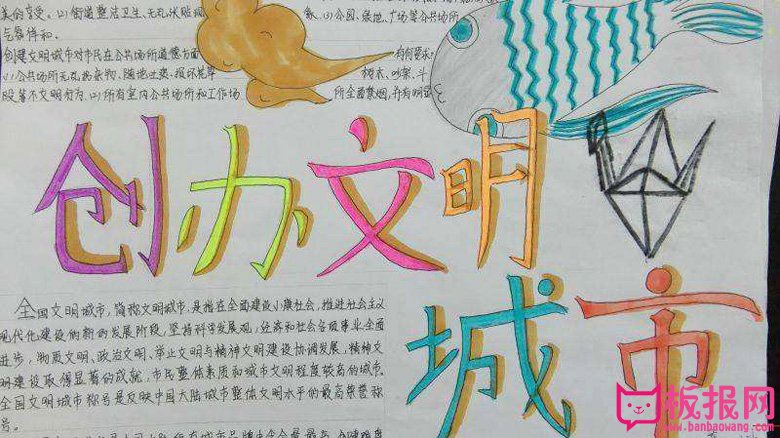 美的享受、(2)街道整洁卫生、无乱 贴现象、(3)公园、绿地、广场等公共场所
气氛祥和.
创建文明城市对市民在公共场所道德方面有何要求?
(1)公共场所无乱扔杂物、随地吐痰、损坏花草树木、吵架、斗
殴等不文明行为、(2)所有室内公共场所和工作场所全面禁烟,并有明显
创办文明
城市
全国文明城市,简称文明城市,是指在全面建设小康社会,推进社会主义
现代化建设的新的发展阶段,坚持科学发展观,经济和社会各项事业全面
进步,物质文明、政治文明、举止文明与精神文明建设协调发展,精神文
明建设取得显著的成就,市民整体素质和城市文明程度较高的城市.
全国文明城市称号是反映中国大陆城市整体文明水平的最高荣誉称
号。
所有城市品牌中含金量最高、创建难度
板报网
www.banbaowang.com